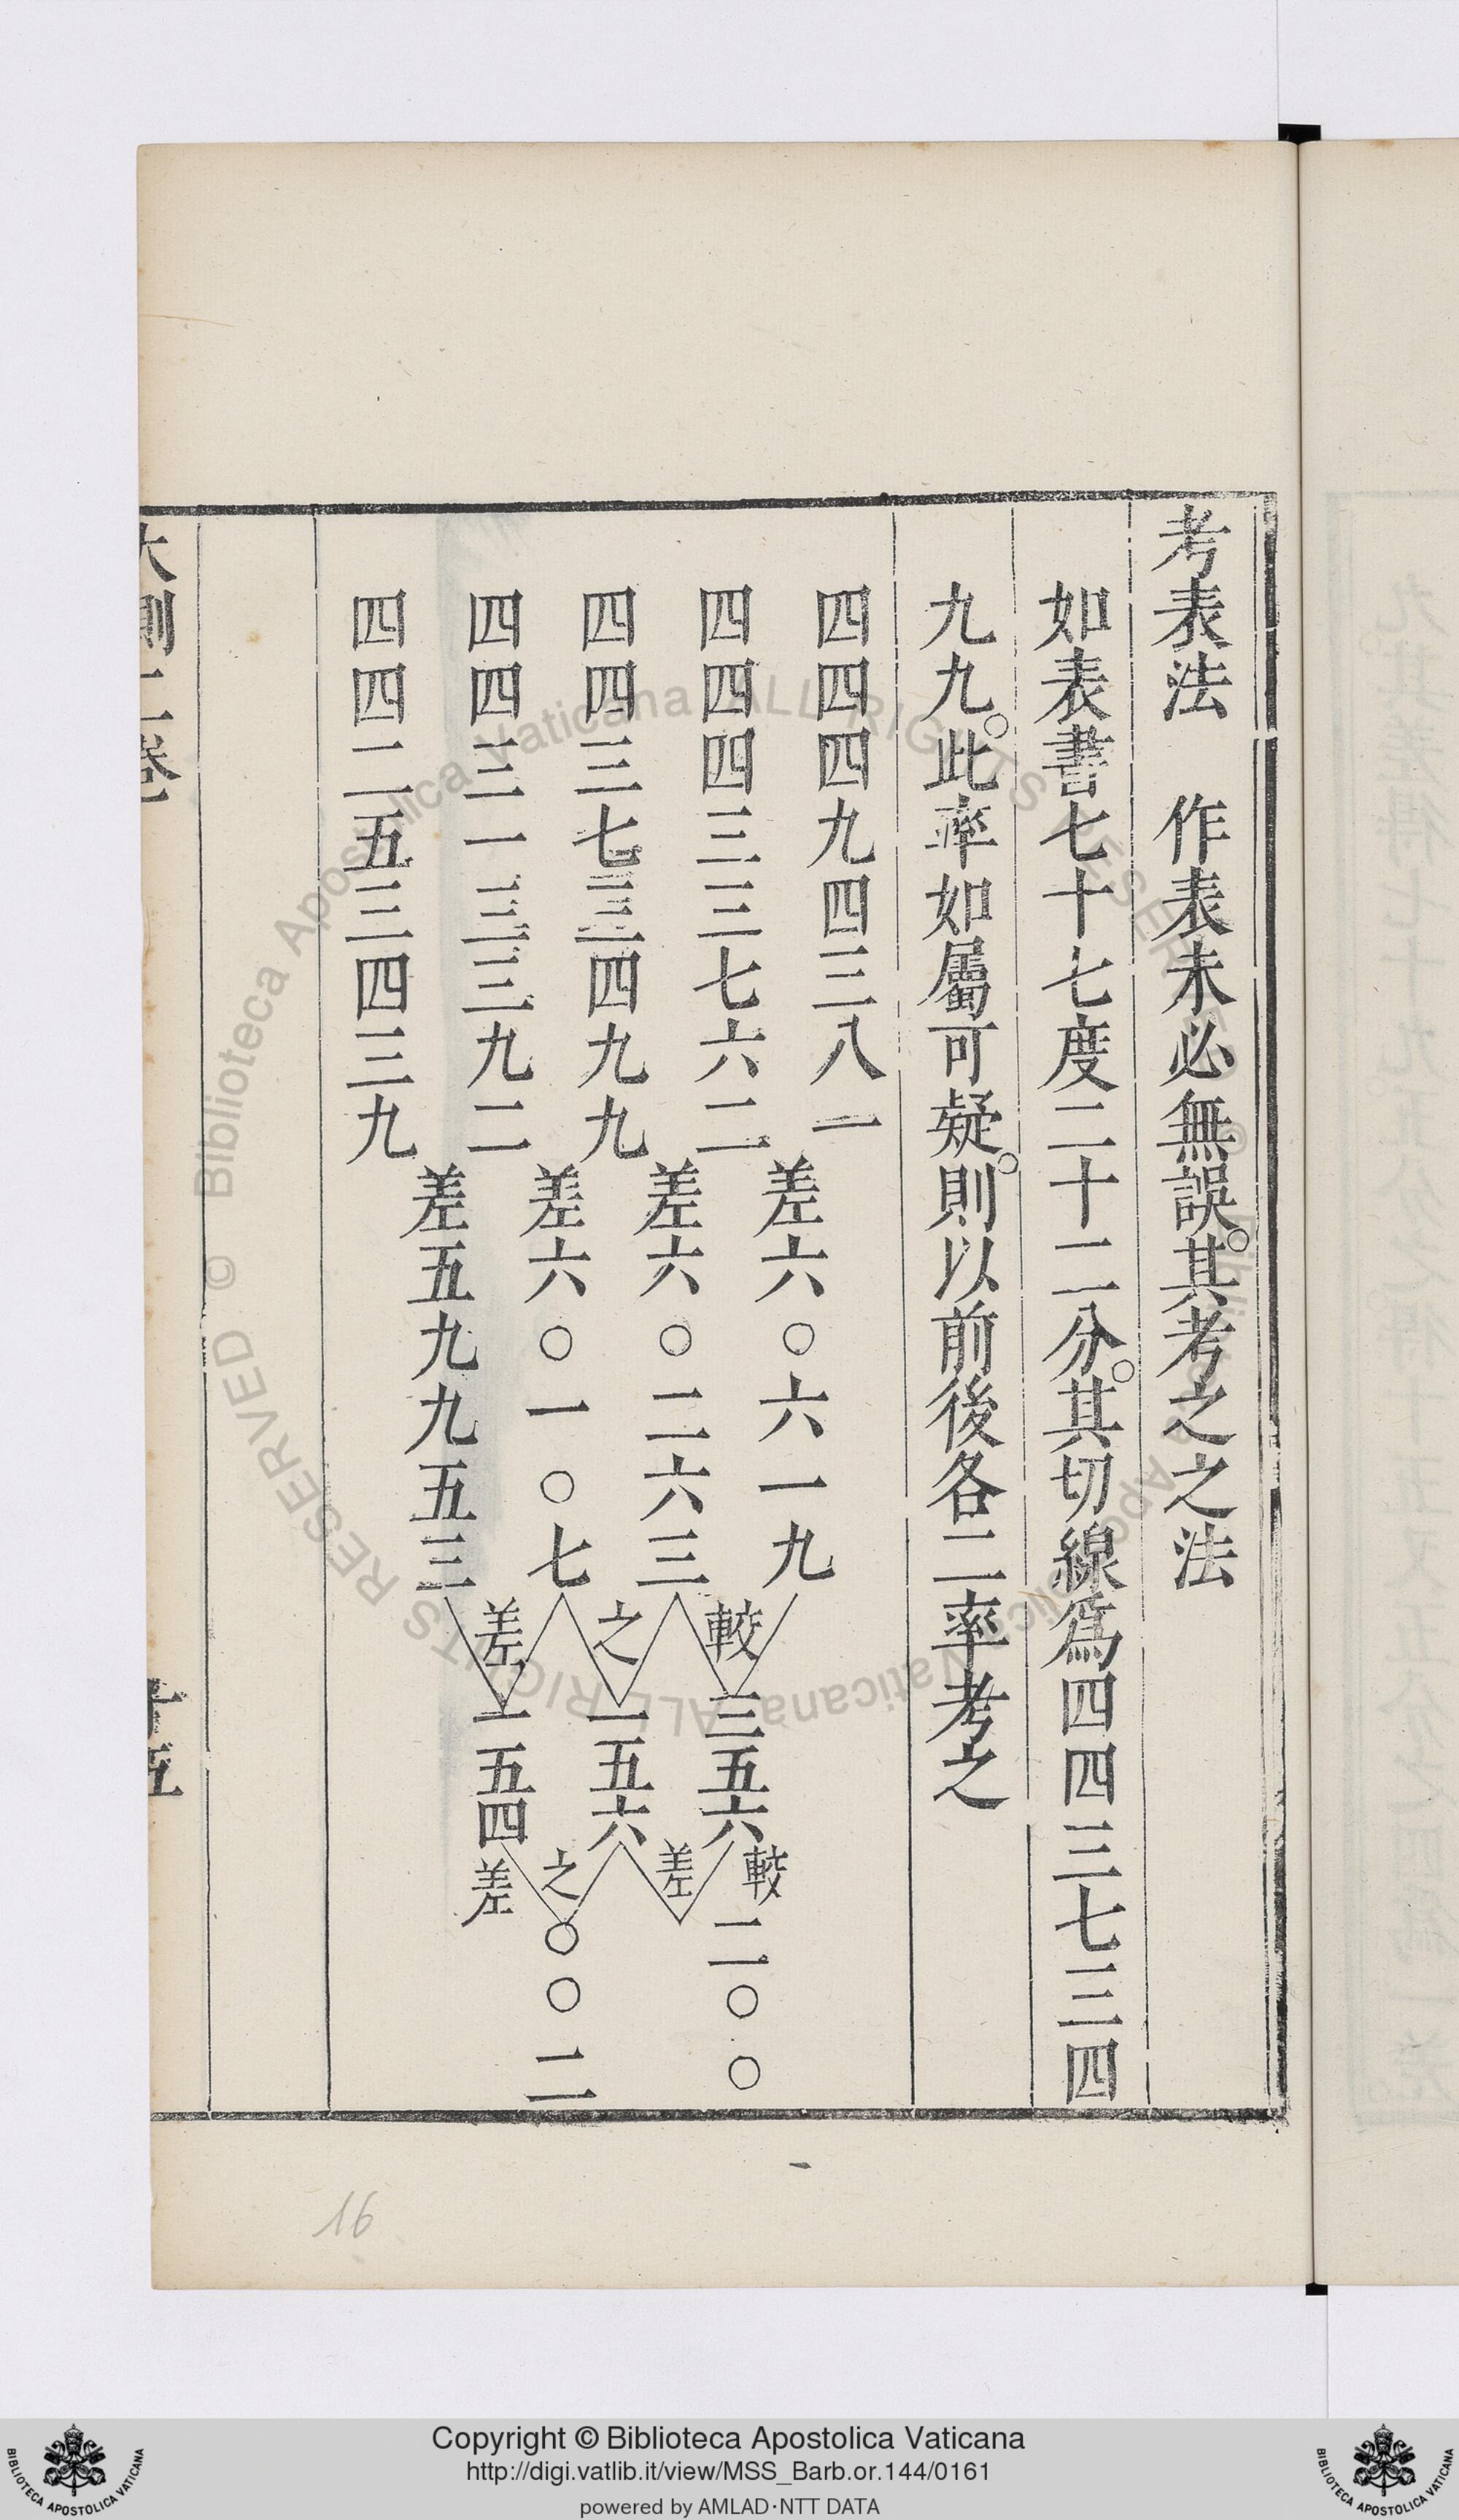 考表法　作表未必無誤。其考之之法
如表書七十七度二十二分。其切線爲四四三七三四
九九。此率如屬可疑。則以前後各二率考之
四四四九四三八一
差六〇六一九
四四四三三七六二
差六〇二六三
四四三七三四九九
差六〇一〇七
四四三一三三九二
差五九九五三
四四二五三四三九
較之差
三五六
一五六
一五四
較差之差
二〇〇
〇〇二
大測二卷
十五
16
Biblioteca Apostolica Vaticana ALL RIGHTS RESERVED ©
Biblioteca Apostolica Vaticana ALL RIGHTS RESERVED ©
Copyright © Biblioteca Apostolica Vaticana
http://digi.vatlib.it/view/MSS_Barb.or.144/0161
powered by AMLAD·NTT DATA
BIBLIOTECA APOSTOLICA VATICANA
BIBLIOTECA APOSTOLICA VATICANA